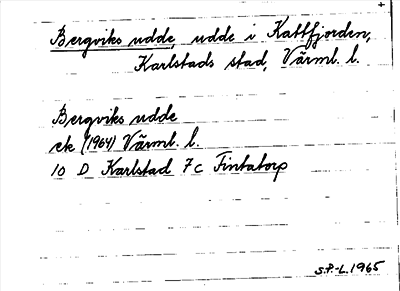 Bergviks udde, udde i Kattfjorden,
Karlstads stad, Värml. l.
Bergviks udde
ek (1964) Värml. l.
10 D Karlstad 7c Fintatorp
S.P.-L. 1965